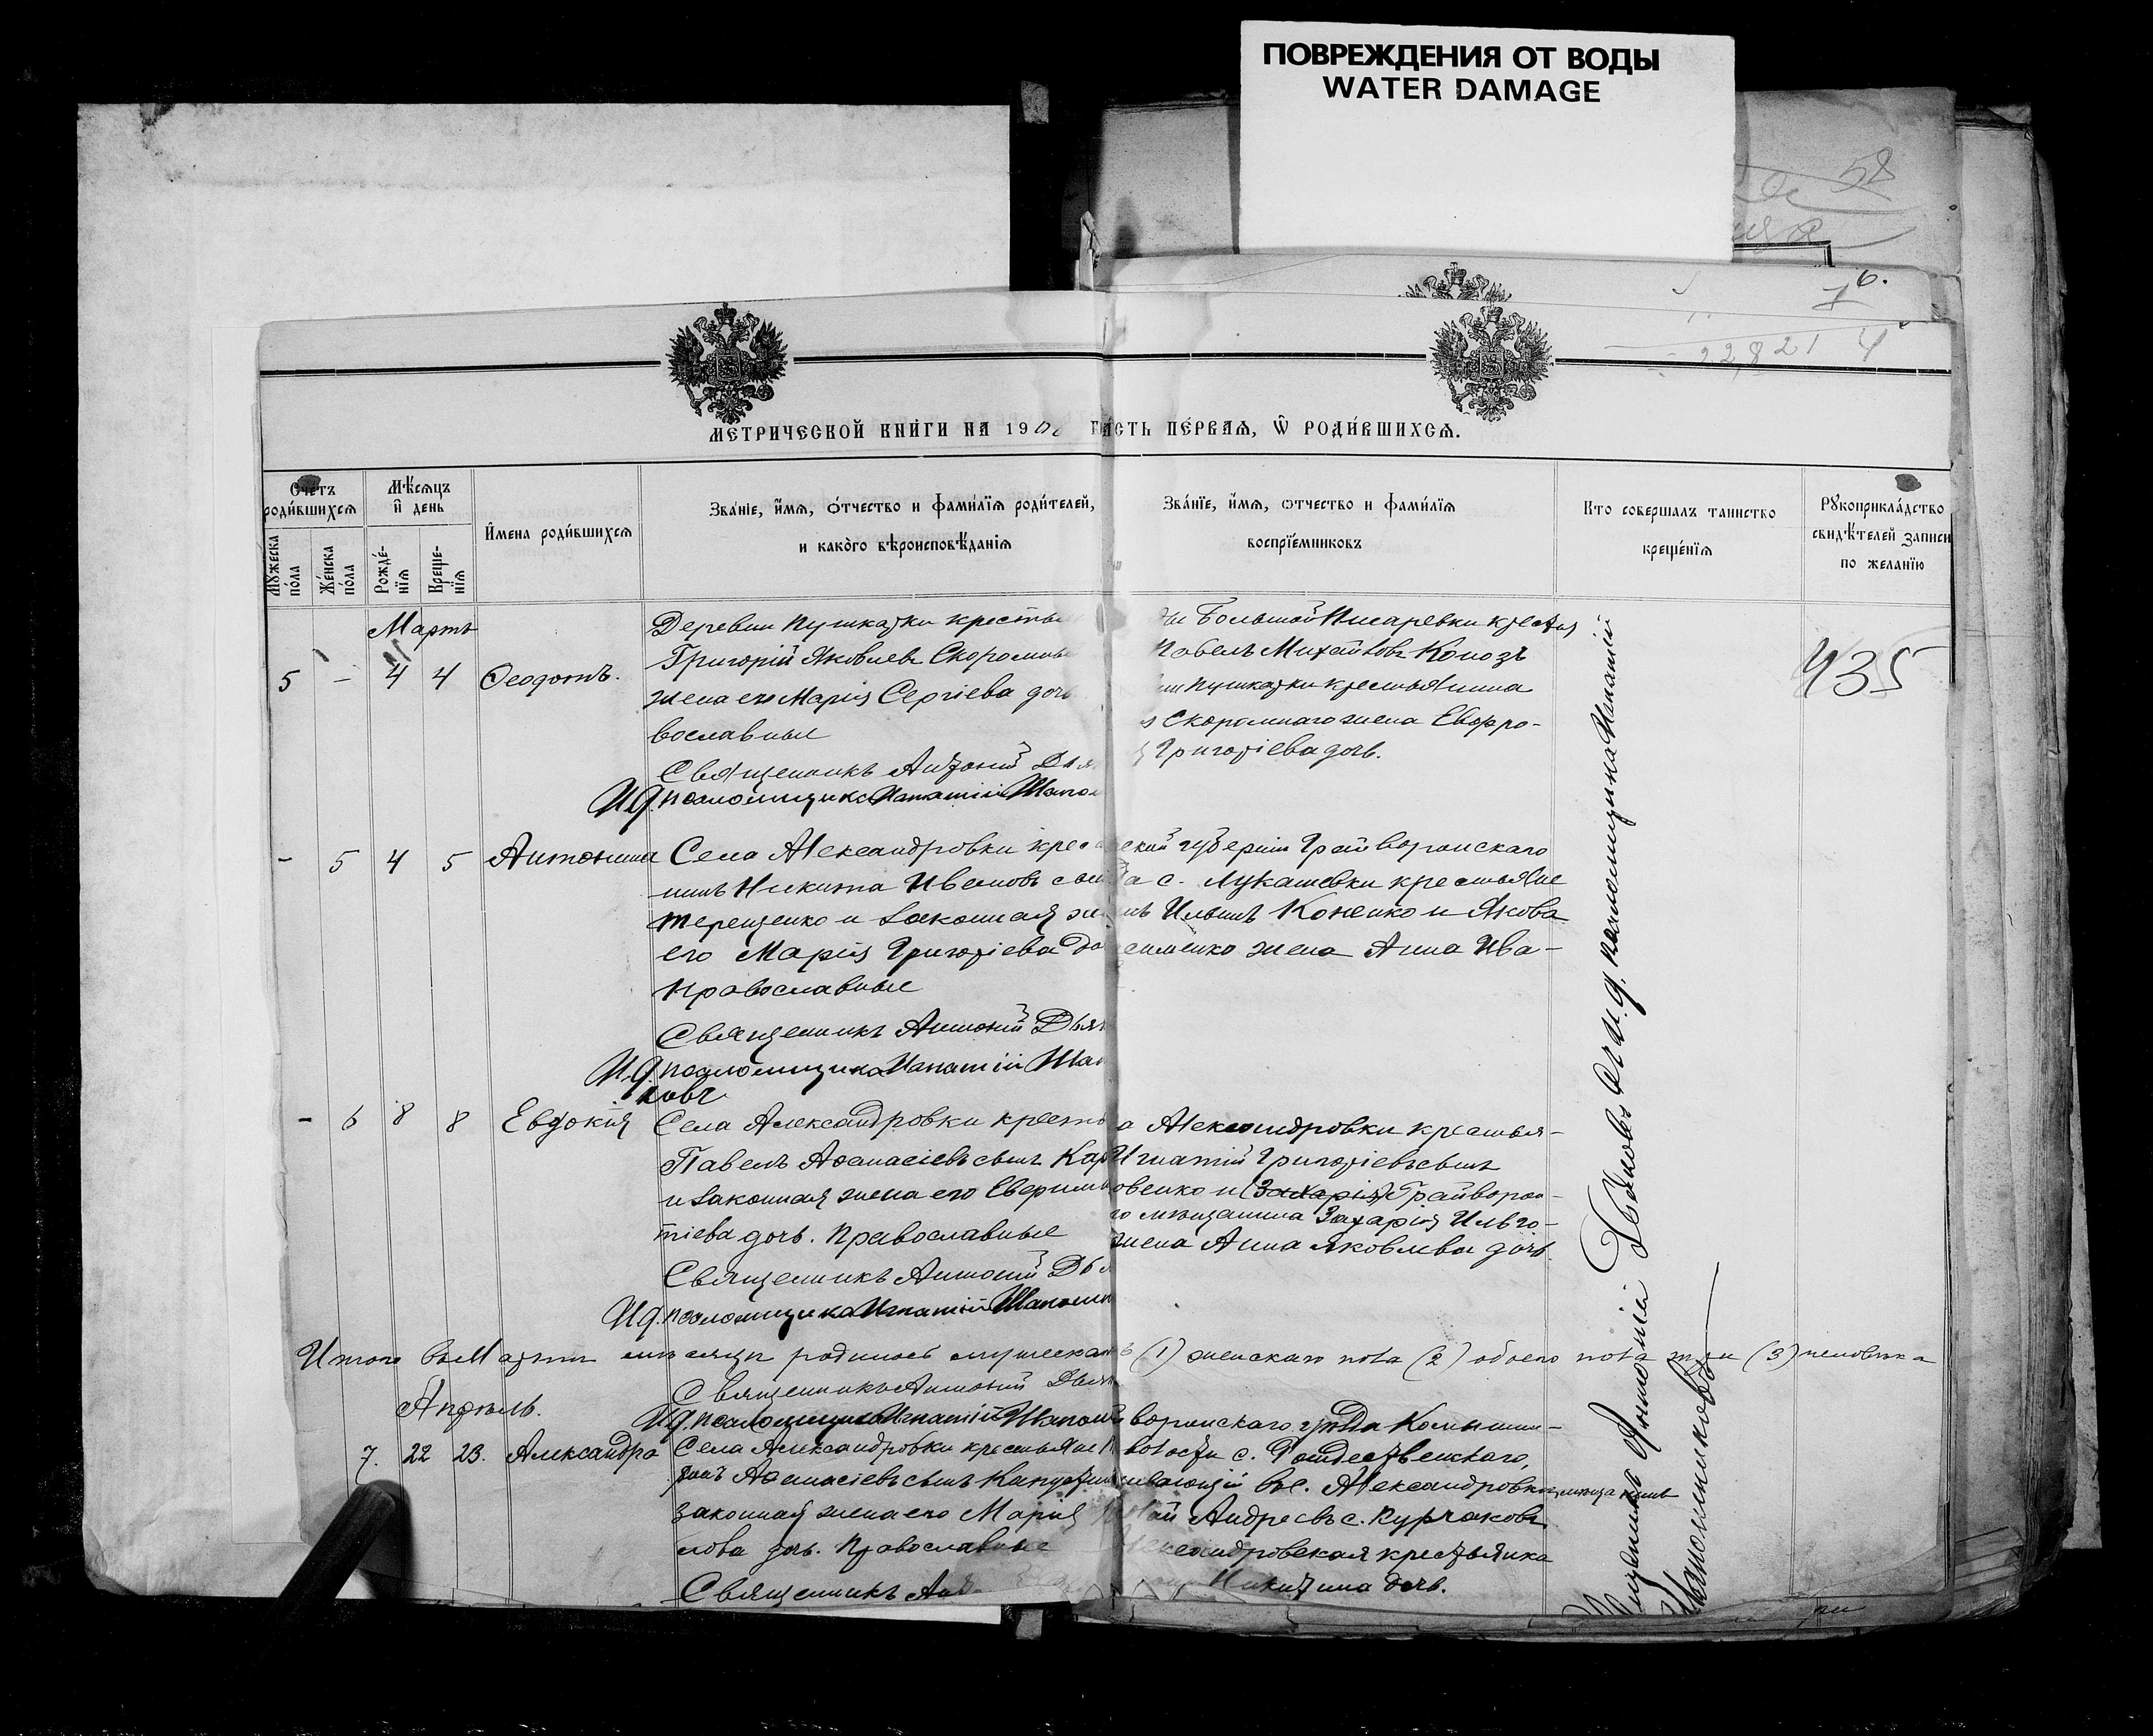 ПОВРЕЖДЕНИЯ ОТ ВОДЫ
WATER DAMAGE
58
6.
22821 4
МЕТРИЧЕСКОЙ КНИГИ НА 190 ЧАСТЬ ПЕРВАЯ, Ѡ РОДИВШИХСЯ.
Счетъ родившихся
Мужеска пола
Женска пола
Мѣсяцъ и день
Рожденїя
Крещенїя
Имена родившихся
Званїе, имя, отчество и фамилїя родителей,
и какого вѣроисповѣданїя
Званїе, имя, отчество и фамилїя
воспрїемниковъ
Кто совершалъ таинство
крещенїя
Рукоприкладство
свидѣтелей записи
по желанїю
Мартъ
5 - 4 4 Ѳеодотъ.
Деревни Пушкарки крестья
Григорій Яковлевъ Скоромны
жена его Марія Сергіева доч
вославные
Священникъ Антоній Дья
И.д. псаломщика Игнатій Шапо
ды Большой Писаревки крестья
Павелъ Михайловъ Коноз
ни Пушкарки крестьянина
Скоромнаго жена Евфро-
Григоріева дочь.
435
- 5 4 5 Антонина
Села Александровки крес
нинъ Никита Ивановъ сынъ
Терещенко и законная же
его Марія Григоріева до
Православные
Священникъ Антоній Дья
И.д. псаломщика Игнатій Шап
ковъ
ской губерніи Грайворонскаго
да с. Лукашевки крестьяне
нъ Ильинъ Коненко и Якова
сименко жена Анна Ива-
- 6 8 8 Евдокія
Села Александровки кресть
Павелъ Аѳанасіевъ сынъ Кап
и законная жена его Евфими
тіева дочь. Православные
Священникъ Антоній Дья
И.д. псаломщика Игнатій Шапошн
а Александровки крестья-
Игнатій Григоріевъ сынъ
овенко и (Захарія) Грайворон-
го мѣщанина Захарія Ильчо-
жена Анна Яковлева дочь.
Итого въ Мартѣ мѣсяцѣ родилось мужеска (1) женскаго пола (2) обоего пола три (3) человѣка
Священникъ Антоній Дья
И.д. псаломщика Игнатій Шапош
Апрѣль.
7. 22 23. Александра
Села Александровки крестьяне
Аѳанасіевъ сынъ Капуст
законная жена его Марія
лова дочь. Православные
Священникъ Ан
воронскаго уѣзда Камышин-
волости с. Рождественскаго,
живающій въ с. Александровкѣ мѣщанинъ
лай Андреевъ с. Курчаковъ
Александровская крестьянка
Никитина дочь.
Священникъ Антоній Дьяковъ и и.д. псаломщика Игнатій
Шапошниковъ